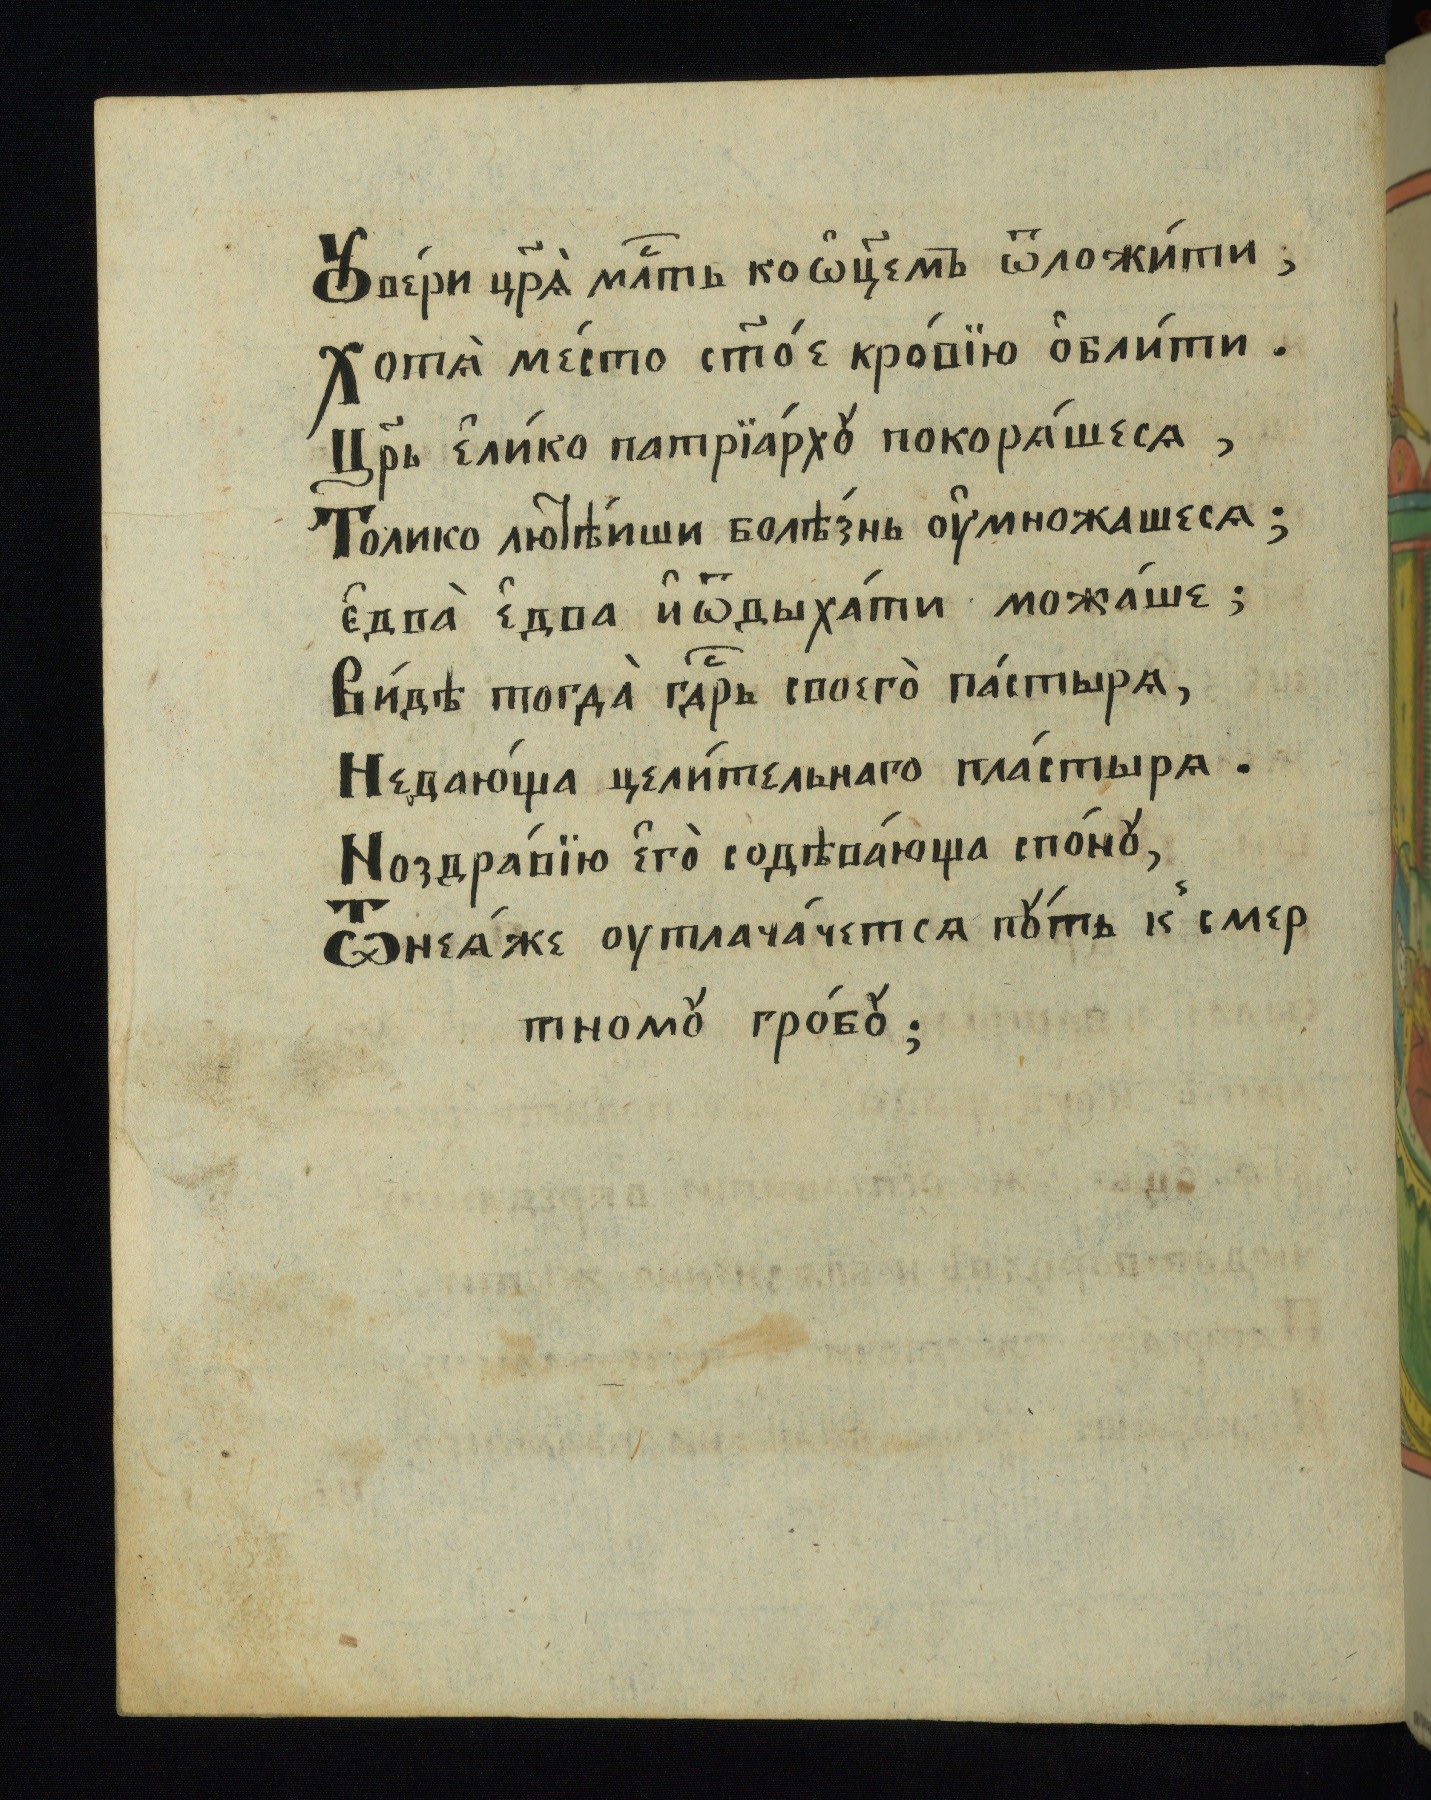 Ꙋвери црѧ̀ млⷭть коѡ҆ц҃емъ ѿложи́ти ;
Хотѧ̀ ме́сто ст҃о́е кро́вїю ѻ҆бли́ти .
Цр҃ь є҆ли́ко патрїа́рхꙋ покорѧ́шесѧ ,
Толико лютѣ́иши болѣ́знь оу҆множашесѧ ;
Є҆два̀ є҆два и҆ѿдыха́ти можа́ше ;
Ви́дѣ тогда̀ гдⷭрь своего̀ па́стырѧ ,
Недаю́ща цели́тельнаго пла́стырѧ .
Ноздра́вїю є҆го̀ содѣва́юща спо́нꙋ ,
Ѿнеѧ́же оутлача́четсѧ пꙋ́ть к смер
тномꙋ гро́бꙋ ;